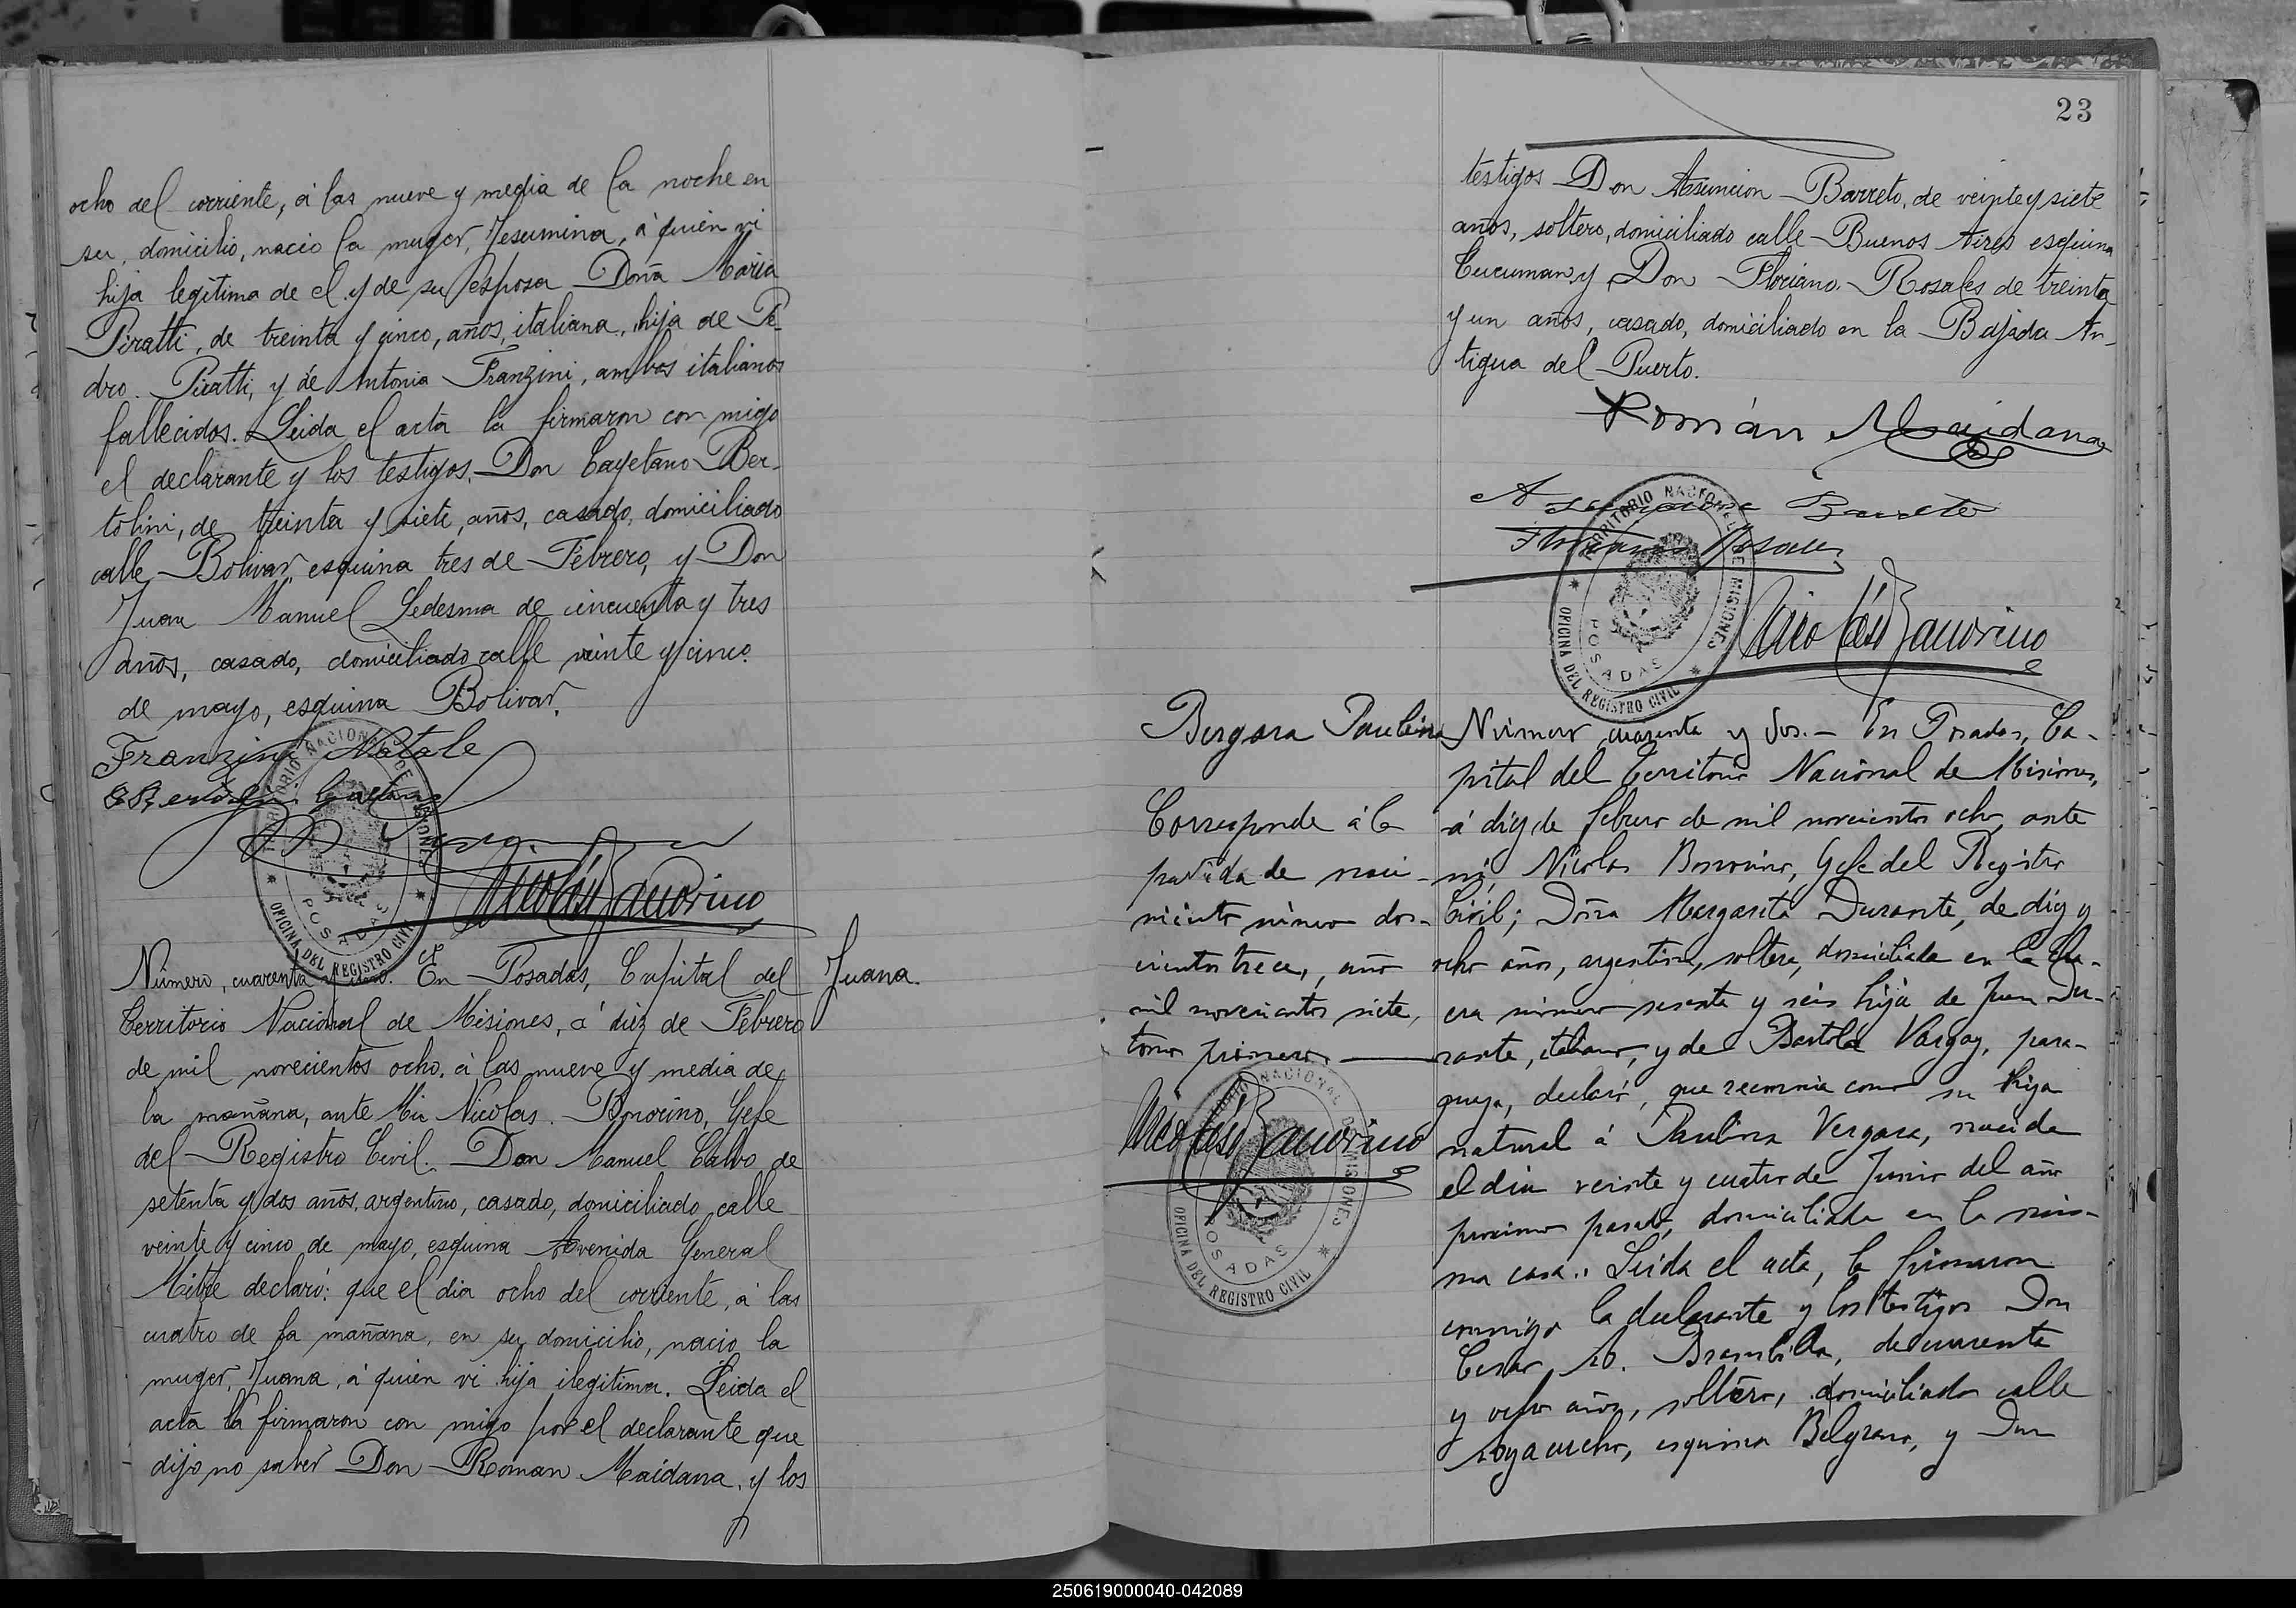 ocho del corriente, á las nueve y media de la noche en
su domicilio, nació la muger, Jesumina, á quién vi
hija legítima de el y de su esposa Doña Maria
Piratti, de treinta y cinco, años, italiana, hija de Pe-
dro Piratti, y de Antonia Franzini, ambos italianos
fallecidos. Leida el acta la firmaron con migo
el declarante y los testigos. Don Cayetano Ber-
tolini, de treinta y siete, años, casado, domiciliado
calle Bolivar, esquina tres de Febrero, y Don
Juan Manuel Ledesma de cincuenta y tres
años, casado, domiciliado calle veinte y cinco
de mayo, esquina Bolivar.
Franzini Natale
Nicolás Bonorino
TERRITORIO NACIONAL DE MISIONES
POSADAS
OFICINA DEL REGISTRO CIVIL
Juana.
Número, cuarenta y uno. En Posadas, Capital del
Territorio Nacional de Misiones, á diez de Febrero
de mil novecientos ocho, á las nueve y media de
la mañana, ante Mi Nicolas Bonorino, Gefe
del Registro Civil. Don Manuel Calvo de
setenta y dos años, argentino, casado, domiciliado calle
veinte y cinco de mayo, esquina Avenida General
Mitre declaró: que el dia ocho del corriente, á las
cuatro de la mañana, en su domicilio, nacio la
muger, Juana, á quién vi hija ilegitima. Leida el
acta la firmaron con migo por el declarante que
dijo no saber Don Roman Maidana, y los
23
testigos Don Asuncion Barreto, de veinte y siete
años, soltero, domiciliado calle Buenos Aires esquina
Tucuman y Don Floriano Rosales de treinta
y un años, casado, domiciliado en la Bajada An-
tigua del Puerto.
Román Maidana
Asunciona Barreto
Floriano Rosales
Nicolás Bonorino
TERRITORIO NACIONAL DE MISIONES
POSADAS
OFICINA DEL REGISTRO CIVIL
Bergara Paulina
Corresponde á la
partida de naci-
miento número dos-
cientos trece, año
mil novecientos siete,
tomo primero.
Nicolás Bonorino
TERRITORIO NACIONAL DE MISIONES
POSADAS
OFICINA DEL REGISTRO CIVIL
Número cuarenta y dos.- En Posadas, Ca-
pital del Territorio Nacional de Misiones,
á diez de febrero de mil novecientos ocho, ante
mi, Nicolas Bonorino, Gefe del Registro
Civil; Doña Margarita Durante, de diez y
ocho años, argentina, soltera, domiciliada en la Cha-
cra número sesenta y seis hija de Juan Du-
rante, italiano, y de Bartola Vargas, para-
guaya, declaró, que reconocia como su hija
natural á Paulina Vergara, nacida
el dia veinte y cuatro de Junio del año
proximo pasado, domiciliada en la mis-
ma casa.. Leida el acta, la firmaron
conmigo la declarante y los testigos Don
Cesar A. Brambilla, de cuarenta
y ocho años, soltero, domiciliado calle
Ayacucho, esquina Belgrano, y Don
250619000040-042089